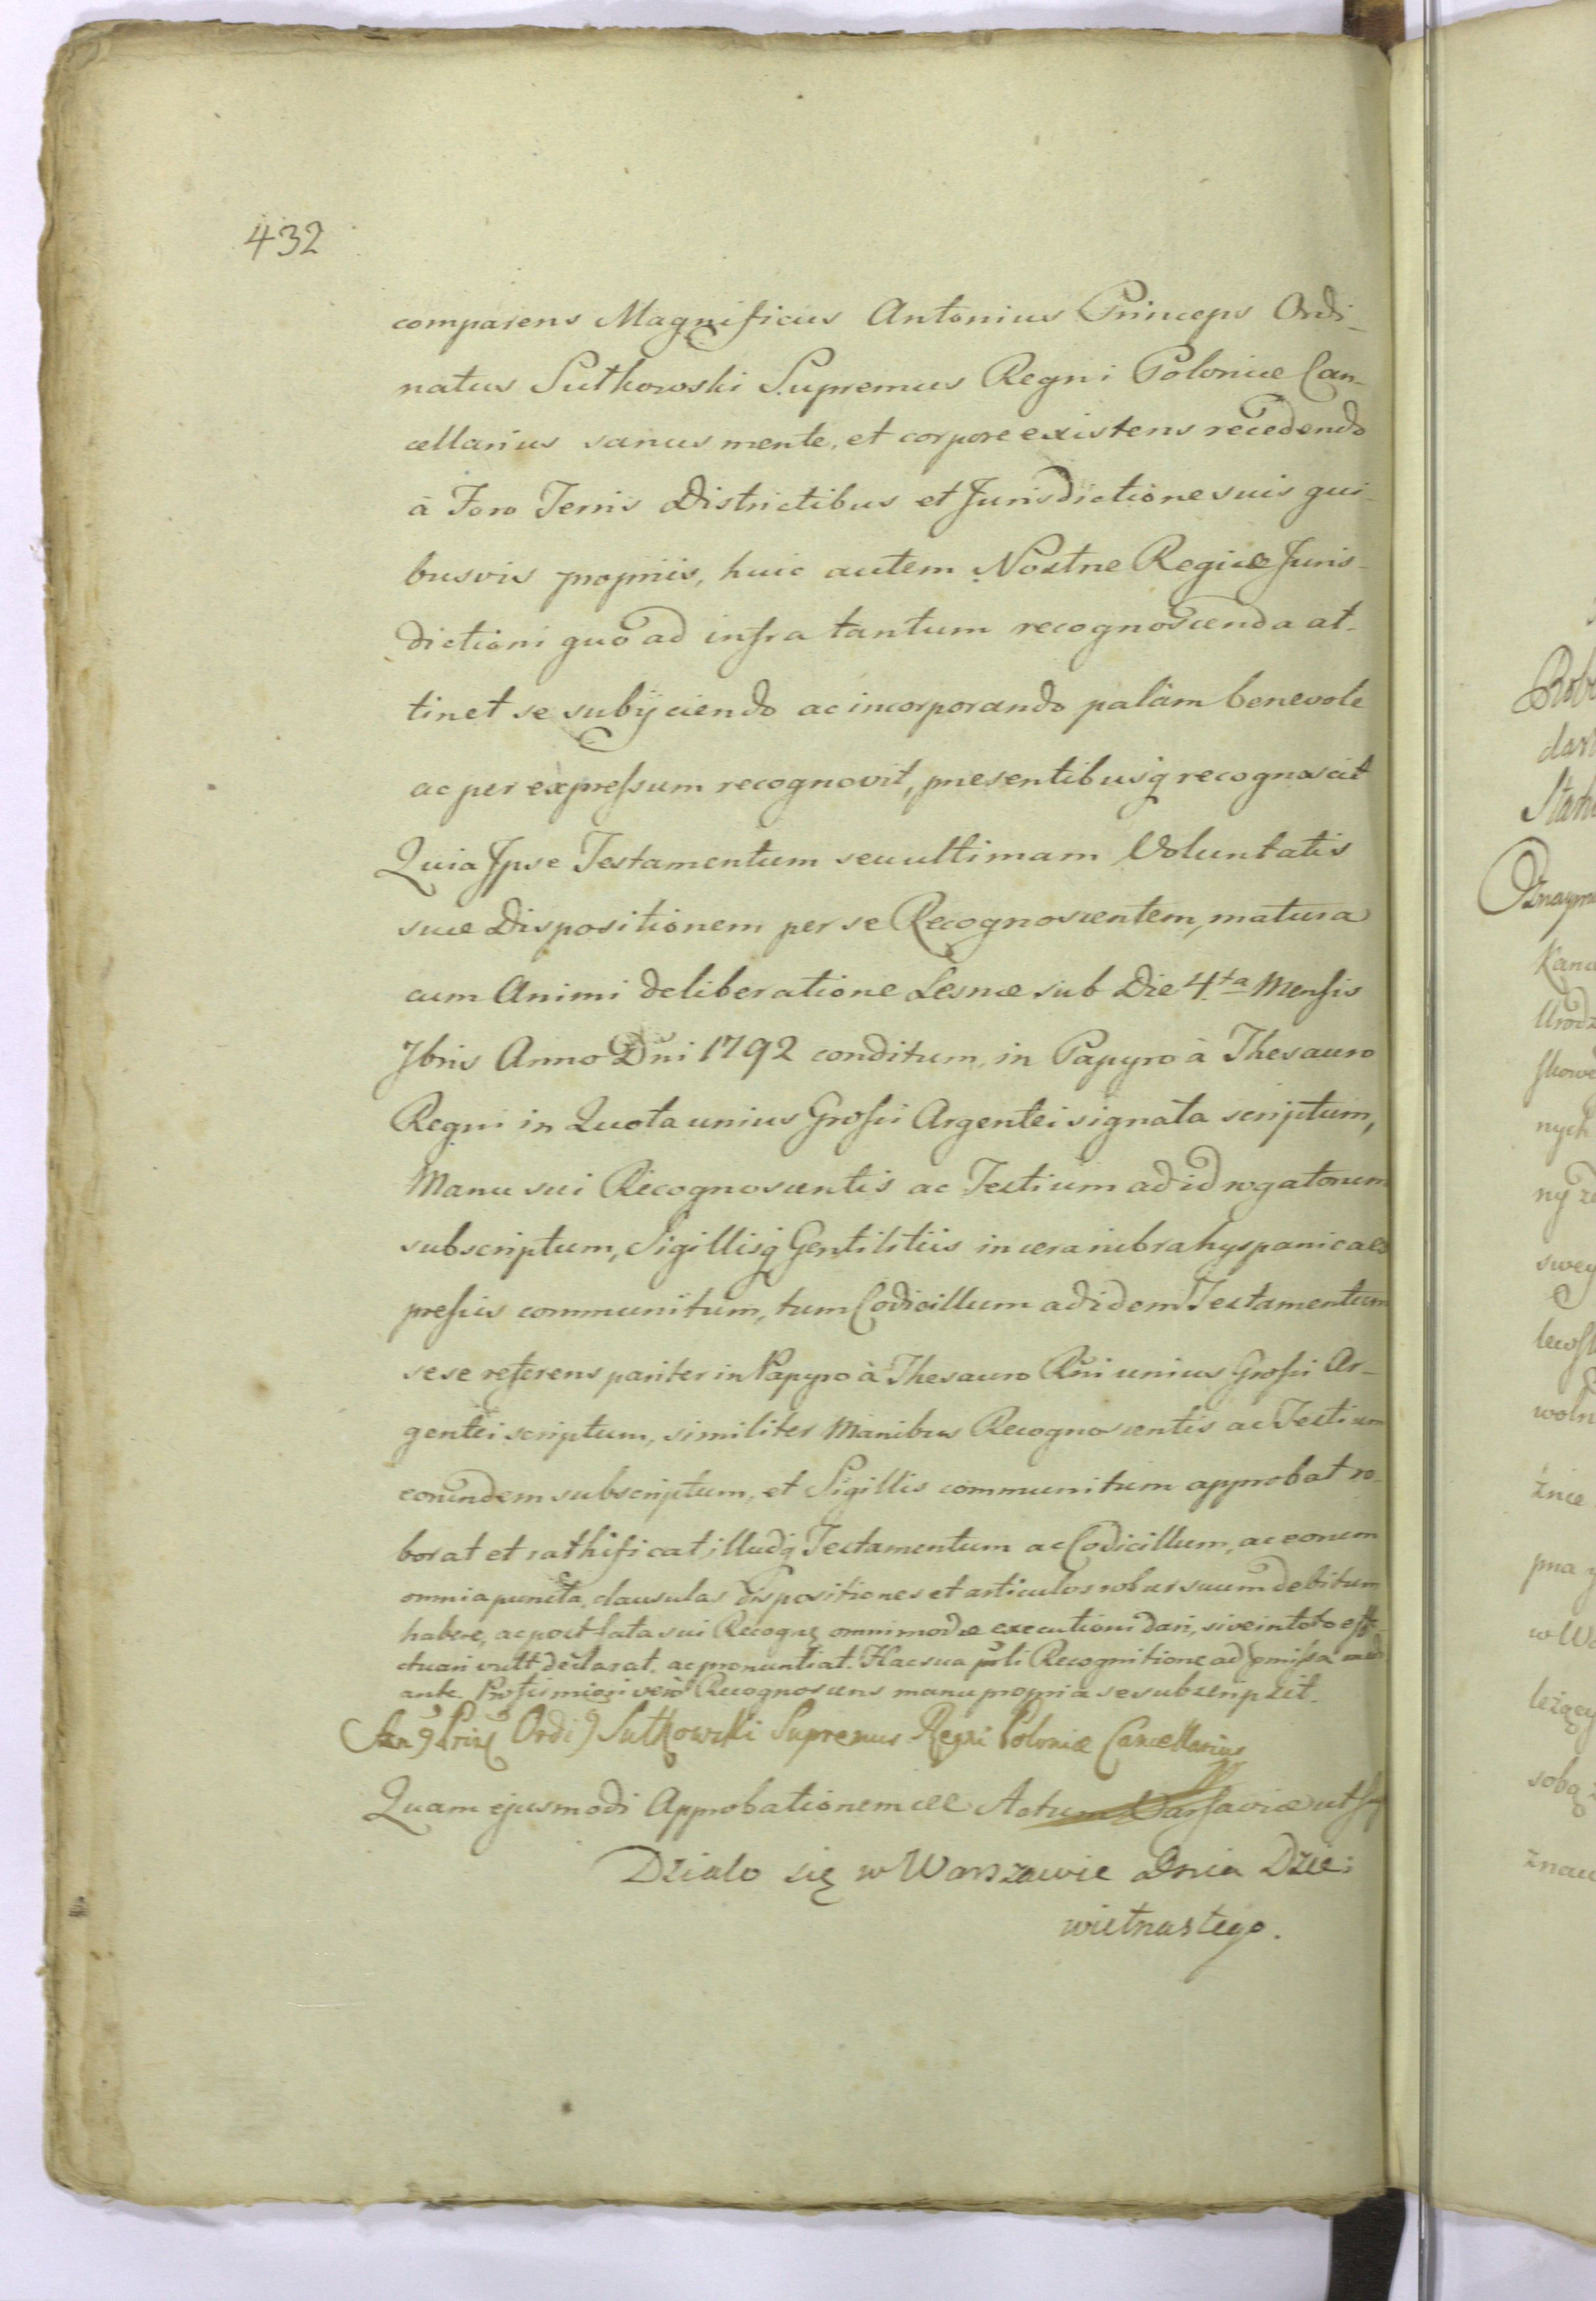 432
comparens Magnificus Antonius Princeps Ordi-
natus Sułkowski Supremus Regni Poloniæ Can-
cellarius sanus mente, et corpore existens recedendo
à Foro Terris Districtibus et Jurisdictione suis qui-
busvis propriis, huic autem Nostræ Regiæ Juris-
dictioni quo ad infra tantum recognoscenda at-
tinet se subijciendo ac incorporando palàm benevole
ac per expressum recognovit, præsentibusq recognoscit
Quia Ipse Testamentum seu ultimam Voluntatis
suæ Dispositionem per se Recognoscentem, matura
cum Animi deliberatione Lesnæ sub Die 4.ta Mensis
7bris Anno Dni 1792 conditum, in Papyro à Thesauro
Regni in Quota unius Grossi Argentei signata scriptum,
Manu sui Recognoscentis ac Testium ad id rogatorum
subscriptum, Sigillisq Gentilitiis in cera rubra hyspanica ex
pressis communitum, tum Codicillum ad idem Testamentum
sese referens pariter in Papyro à Thesauro Rni unius Grossi Ar-
gentei scriptum, similiter Manibus Recognoscentis ac Testium
eorundem subscriptum, et Sigillis communitum approbat ro-
borat et rathificat, illudq Testamentum ac Codicillum, ac eorum
omnia puncta, clausulas dispositiones et articulos robur suum debitum
habere, ac post fata sui Recogn omnimodæ executioni dari, sive in toto effe-
ctuari vult declarat, ac pronuntiat. Hac sua pnti Recognitione ad præmissa medi
ante. Pro firmiori vero Recognoscens manu propria se subscripsit.
Ordi Sułkowski Supremus Regni Poloniæ Cancellarius
Quam ejusmodi Approbationem Actum Varsaviæ ut
Działo się w Warszawie dnia Dzie:
wietnastego.